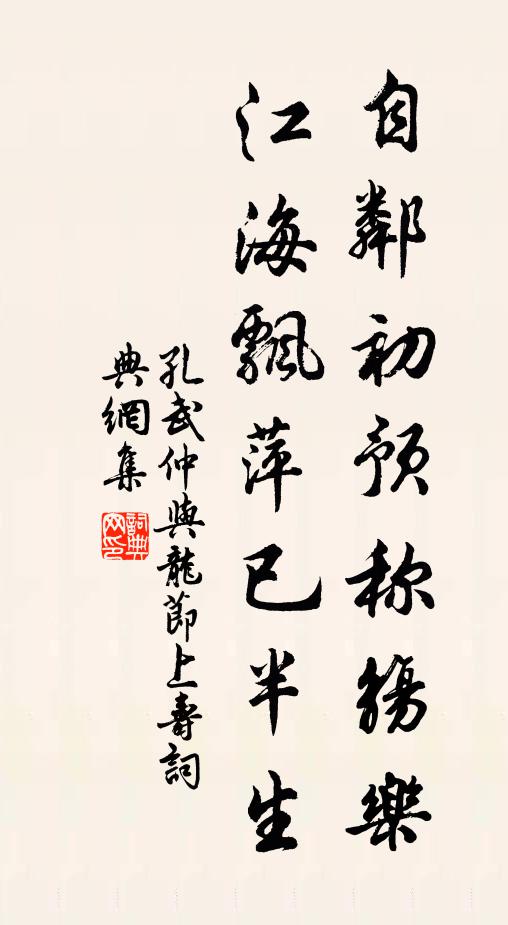 自鄰初預称觴樂
江海飄萍已半生
孔武仲與龍節上壽詞
典網集
詞典網印